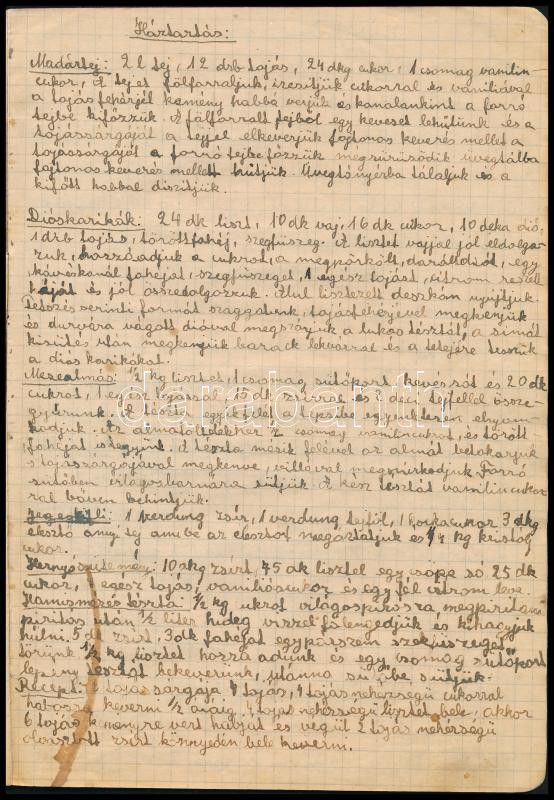 Háztartás:
Madártej: 2 l tej, 12 drb tojás, 24 dkg cukor, 1 csomag vanilin-
cukor, A tejet fölforraljuk, izesitjük cukorral és vaniliával
a tojásfehérjét kemény habbá verjük és kanalankint a forró
tejbe kifőzzük. A fölforralt tejből egy keveset lehűtünk és a
tojássárgáját a tejjel elkeverjük folytonos keverés mellet a
tojássárgáját a forró tejbe főzzük megsürüsödik üvegtálba
folytonos keverés mellett hűtjük. Üvegtányérba tálaljuk és a
kifőtt habbal díszitjük.
Dióskarikák: 24 dk liszt, 10 dk vaj, 16 dk cukor, 10 deka dió,
1 drb tojás, törött fahéj, szegfüszeg. A lisztet vajjal jól eldolgo-
zzuk, hozzáadjuk a cukrot, a megpörkölt, darált diót, egy
kávéskanál fahéjat, szegfüszeget, 1 egész tojást, citrom reszelt
héját és jól összedolgozzuk. Alul lisztezett deszkán nyujtjuk.
Tetszés szerinti formát szaggatunk, tojásfehérjével megkenjük
és durvára vágott dióval megszórjuk a lukas tésztát, a simát
kisütés után megkenjük barack lekvárral és a tetejére tesszük
a diós karikákat.
Mézesalmás: 1/2 kg lisztet, 1 csomag sütőport, kevés sót és 20 dk
cukrot, 1 egész tojással, 15 dk zsirral és 2 deci tejfellel össze-
gyúrunk. A tészta egyik felét a tepsibe egyenletesen elnyom-
kodjuk. Az almatöltelékhez 2 csomag vanilincukrot, és törött
fahéjat vegyünk. A tészta másik felével az almát betakarjuk
s tojássárgájával megkenve, villával megszurkodjuk. Forró
sütőben világosbarnára sütjük. A kész tésztát vanilincukor-
ral bőven behintjük.
1 verdung zsír, 1 verdung tejföl, 1 kockacukor 3 dkg
élesztő annyi tej amibe az élesztőt megáztatjuk és 1/4 kg kristály
cukor.
10 dkg zsírt, 45 dk liszttel egy csöpp só 25 dk
cukor, 1 egész tojás, vaniliáscukor és egy fél citrom leve.
Hamismézes tészta: 1/2 kg cukrot világospirosra megpiritunk
piritás után 1/2 liter hideg vizzel fölengedjük és kihagyjuk
hülni. 5 dk zsirt, 3 dk fahéjat egypár szem szegfüszeget
törünk 1/2 kg lisztet hozzá adunk és egy csomag sütőport
tésztát bekeverünk, utánna sütőbe sütjük.
Recept: 6 tojás sárgája 4 tojás, 4 tojás nehérségü cukorral
habosra keverni 1/2 óráig. 4 tojás nehérségü lisztet bele, akkor
6 tojás keményre vert habját és végül 2 tojás nehérségü
olvasztott zsirt könnyedén bele keverni.
darabanth